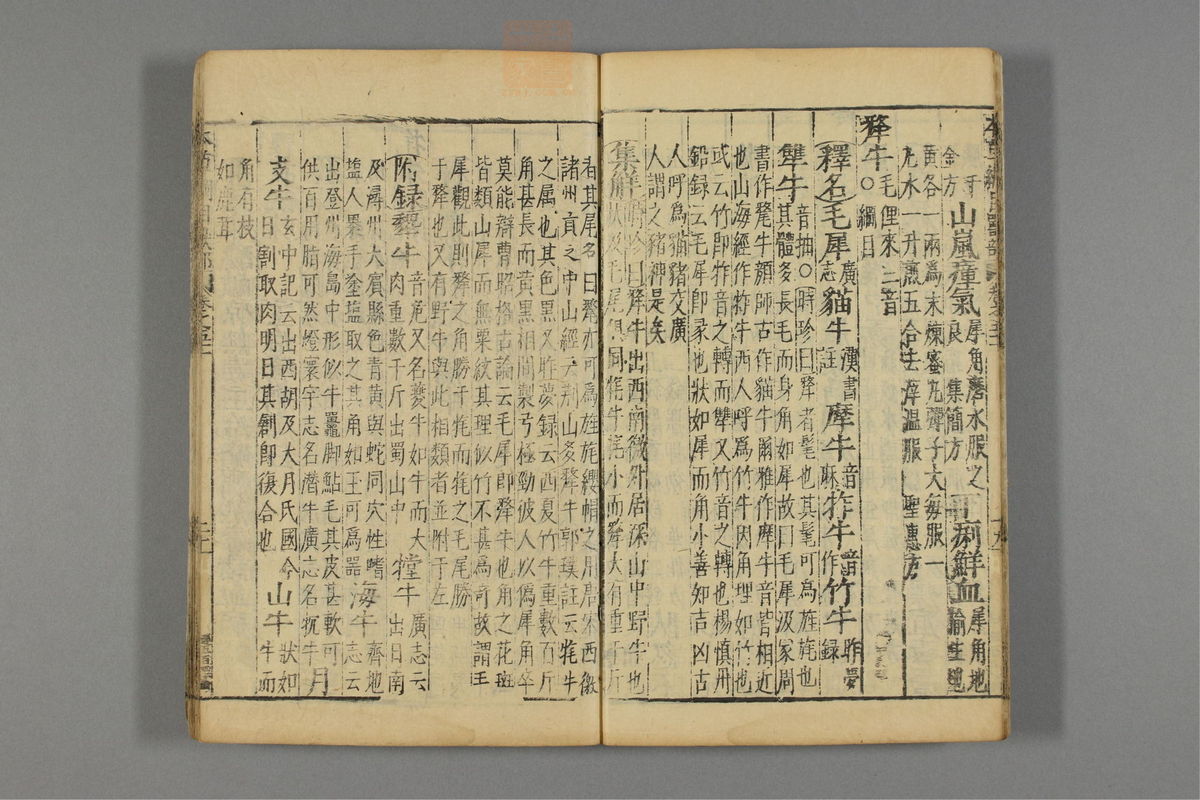 金方 山嵐瘴氣 犀角磨水服之良 集簡方 下痢鮮血 犀角地榆生地
黃各一兩爲末煉蜜丸彈子大每服一
丸水一升煎五合去滓溫服 聖惠方
犛牛 毛俚來三音 ○綱目
釋名 毛犀 廣志 貓牛 漢書註 摩牛 音麻 犛牛 音作 竹牛 昨夢錄
犨牛 音抽○時珍曰犛者髦也其髦可爲旌旄也
其體多長毛而身角如犀故曰毛犀汲冢周
書作氂牛顏師古作貓牛爾雅作摩牛音皆相近
也山海經作㸲牛西人呼爲竹牛因角理如竹也
或云竹卽㸲音之轉而犨又竹音之轉也楊慎丹
鉛錄云毛犀卽彖也狀如犀而角小善知吉凶古
人呼爲貓豬交廣
人謂之豬神是矣
集解 時珍曰犛牛出西南徼外居深山中野牛也
狀及毛尾俱同牦牛牦小而犛大有重千斤
者其尾名曰犛亦可爲旌旄纓帽之用唐宋西徼
諸州貢之中山經云荆山多犛牛郭璞註云牦牛
之屬也其色黑又昨夢錄云西夏竹牛重數百斤
角甚長而黃黑相間製弓極勁彼人以僞犀角卒
莫能辯曹昭格古論云毛犀卽犛牛也用之花斑
皆類山犀而無粟紋其理似竹不甚爲奇故謂王
犀觀此則犛之角勝于牦而牦之毛尾勝
于犛也又有野牛與此相類者並附于左
附錄 犩牛 音危又名夔牛如牛而大肉重數千斤出蜀山中 㹧牛 廣志云出日南
及潯州大賓縣色青黃與蛇同穴性嗜
鹽人裹手塗鹽取之其角如玉可爲器 海牛 齊地志云
出登州海島中形似牛鼉脚鮎毛其皮甚軟可
供百用脂可然燈寰宇志名潛牛廣志名㸹牛 月
支牛 玄中記云出西胡及大月氏國今日割取肉明日其創卽復合也 山牛 狀如牛而
角有枝
如鹿茸